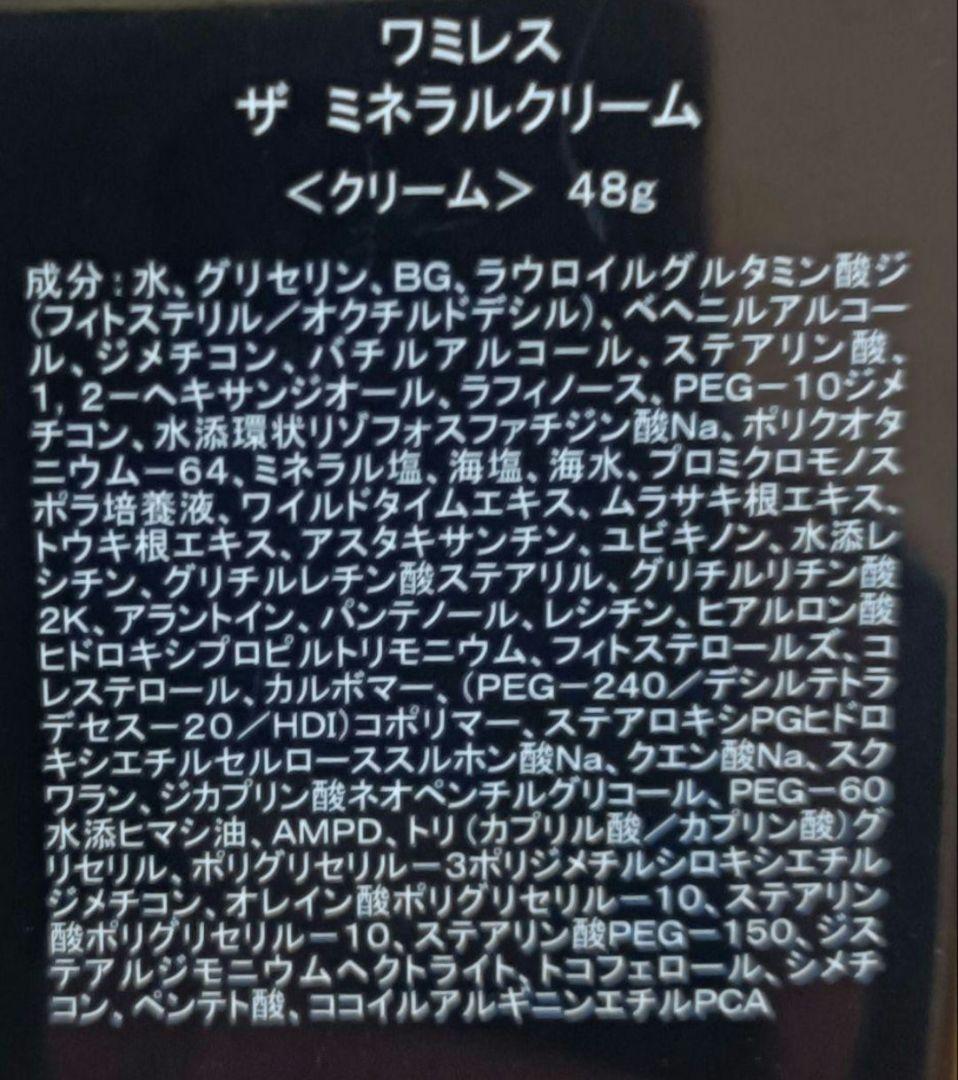 ワミレス
ザ ミネラルクリーム
＜クリーム＞ 48g
成分：水、グリセリン、BG、ラウロイルグルタミン酸ジ
(フィトステリル／オクチルドデシル)、ベヘニルアルコー
ル、ジメチコン、バチルアルコール、ステアリン酸、
1, 2－ヘキサンジオール、ラフィノース、PEG－10ジメ
チコン、水添環状リゾフォスファチジン酸Na、ポリクオタ
ニウム－64、ミネラル塩、海塩、海水、プロミクロモノス
ポラ培養液、ワイルドタイムエキス、ムラサキ根エキス、
トウキ根エキス、アスタキサンチン、ユビキノン、水添レ
シチン、グリチルレチン酸ステアリル、グリチルリチン酸
2K、アラントイン、パンテノール、レシチン、ヒアルロン酸
ヒドロキシプロピルトリモニウム、フィトステロールズ、コ
レステロール、カルボマー、(PEG－240／デシルテトラ
デセス－20／HDI)コポリマー、ステアロキシPGヒドロ
キシエチルセルローススルホン酸Na、クエン酸Na、スク
ワラン、ジカプリン酸ネオペンチルグリコール、PEG－60
水添ヒマシ油、AMPD、トリ(カプリル酸／カプリン酸)グ
リセリル、ポリグリセリル－3ポリジメチルシロキシエチル
ジメチコン、オレイン酸ポリグリセリル－10、ステアリン
酸ポリグリセリル－10、ステアリン酸PEG－150、ジス
テアルジモニウムヘクトライト、トコフェロール、シメチ
コン、ペンテト酸、ココイルアルギニンエチルPCA